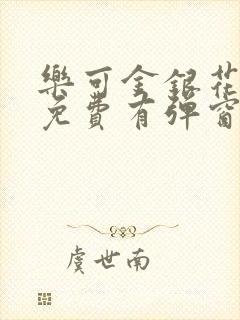 樂可金銀花
免費有彈窗
虞世南